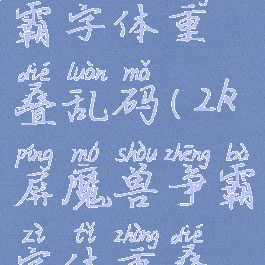 霸字体重
dié luàn mǎ
叠乱码(2k
píng mó shòu zhēng bà
屏魔兽争霸
zì tǐ zhòng dié
字体重叠